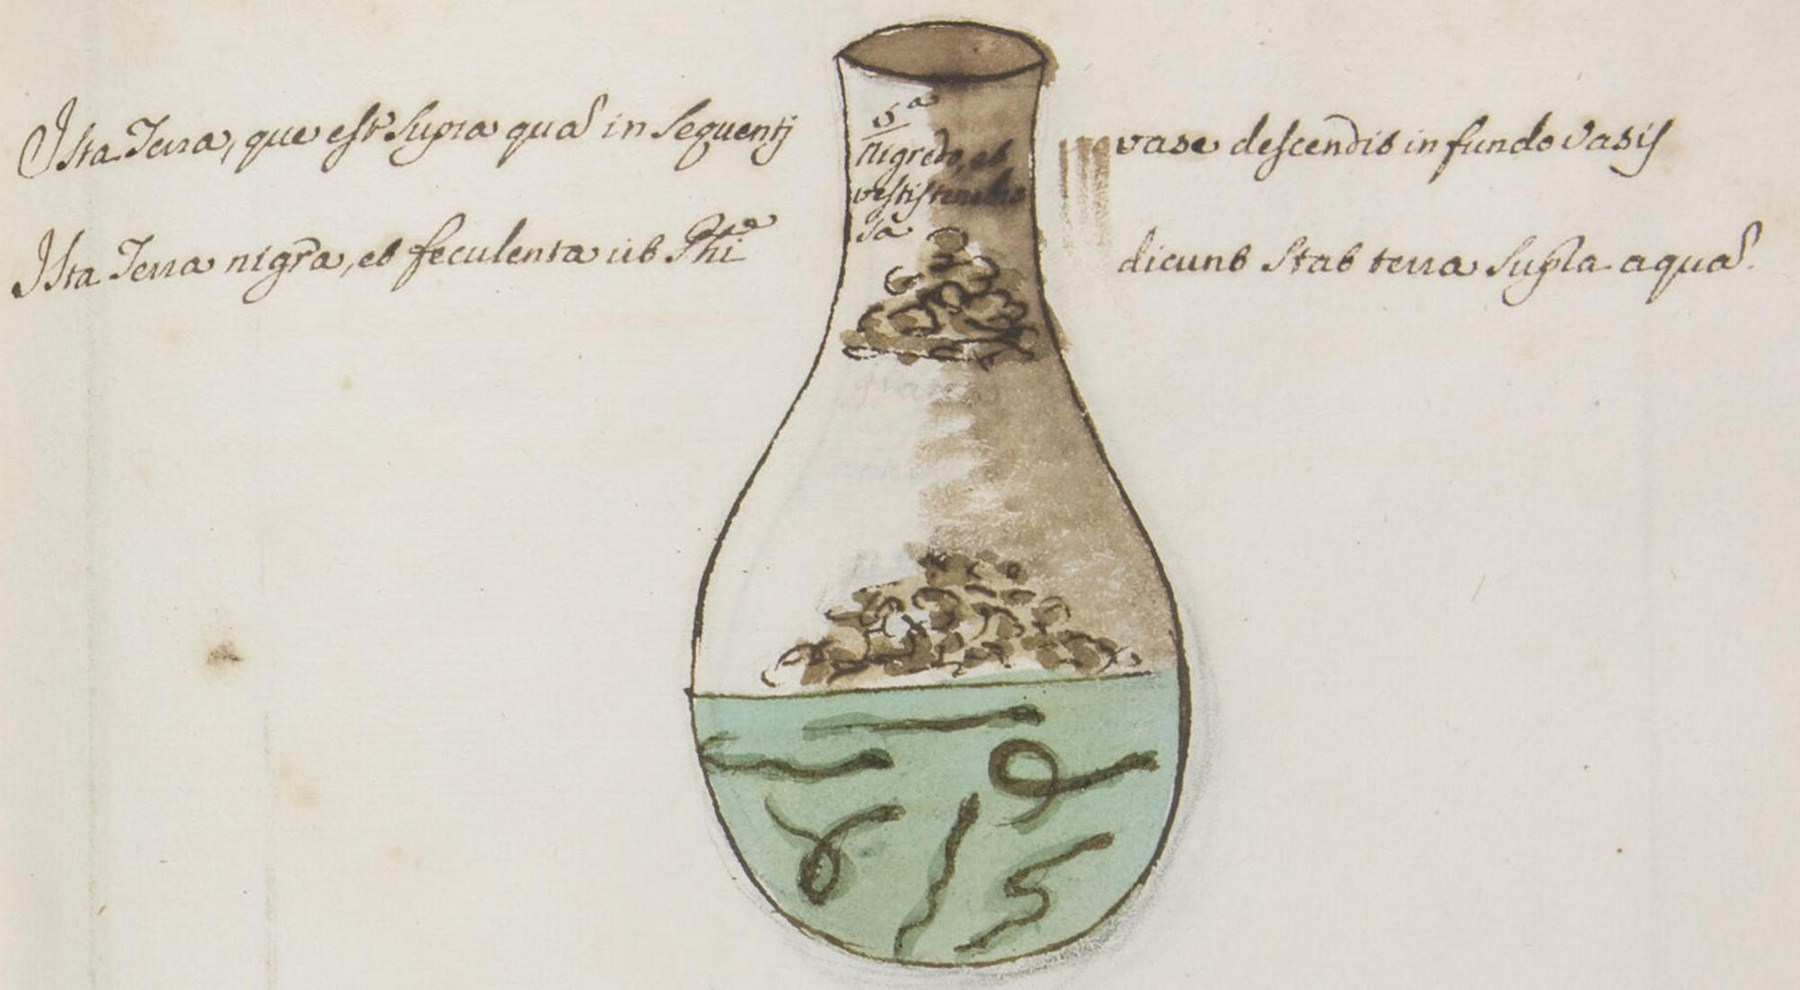 Ista Terra, que est supra quā in sequentj vase descendit in fundo vasis
Ista Terra nigra, et feculenta ut Phi^e dicunt stat terra supra aquā.
5^a
nigredo, et
vestis tenebro
sa